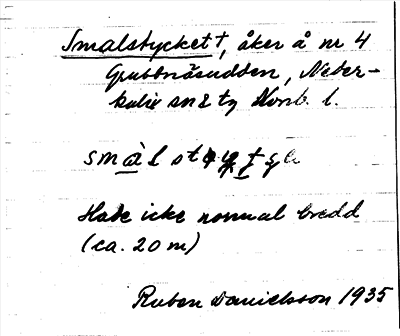 Smalstycket †, åker å nr 4
Grubbnäsudden, Neder-
kalix sn & tg Norrb. l.
smàl
Hade icke normal bredd
(ca. 20 m)
Ruben Danielsson 1935